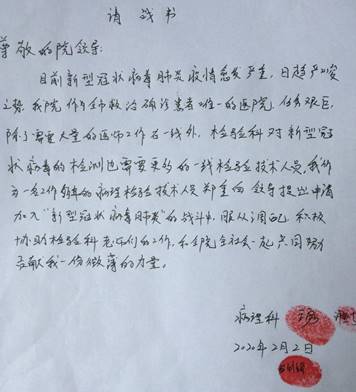 请战书
尊敬的院领导:
目前新型冠状病毒肺炎疫情愈发严重,日趋严峻
之势,我院作为全市救治确诊患者唯一的医院,任务艰巨,
除了需要大量的医师工作在一线外,检验科对新型冠
状病毒的检测也需要更多的一线检验技术人员,我作
为一名工作的病理检验技术人员郑重向领导提出申请
加入“新型冠状病毒肺炎”的战斗中,服从调配,积极
协助检验科老师们的工作,和全院全社会一起共同努力
贡献我一份微薄的力量。
病理科
2020年2月2日